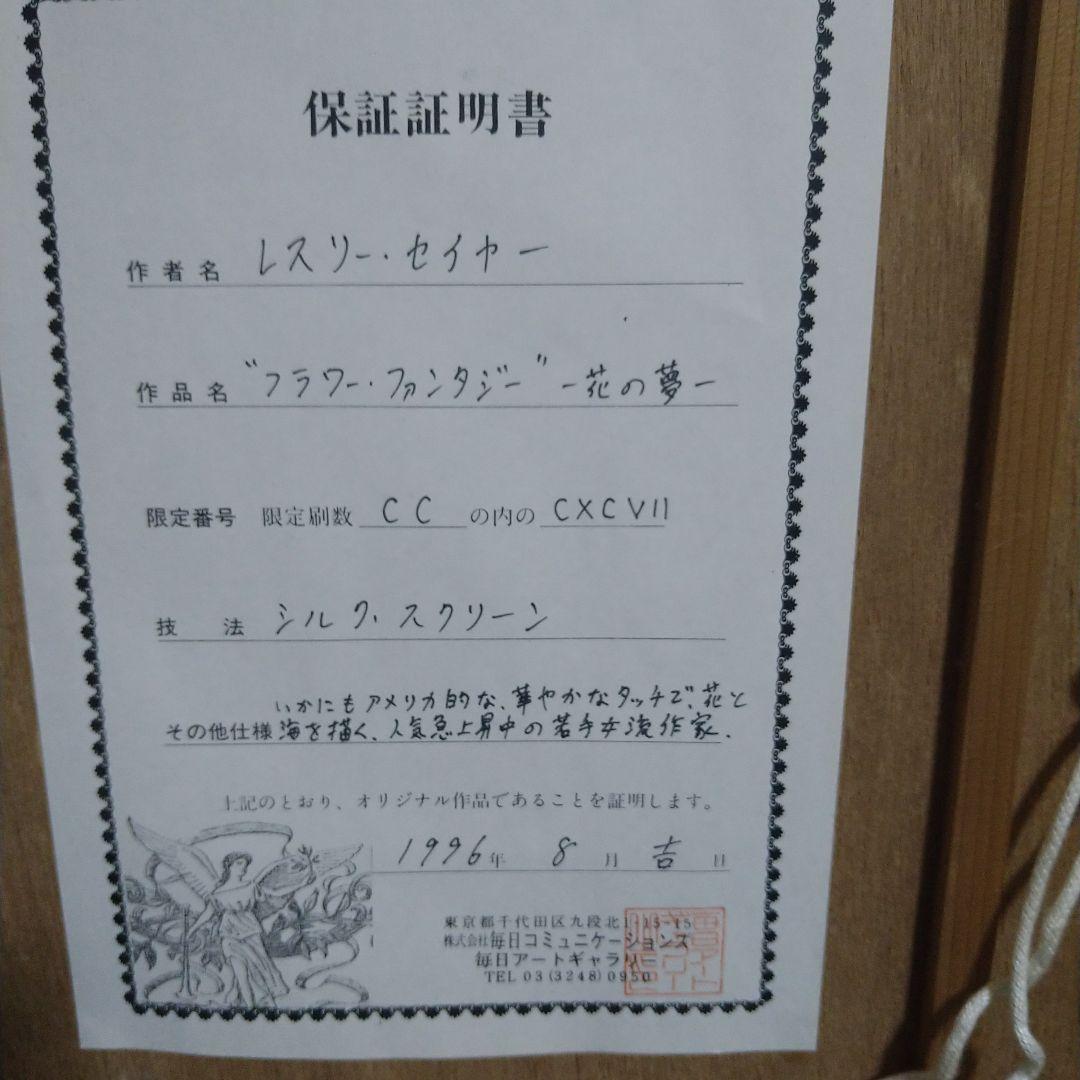 保証証明書
作者名 レスリー・セイヤー
作品名 “フラワー・ファンタジー” －花の夢－
限定番号 限定刷数 CC の内の CXCVII
技法 シルク・スクリーン
いかにもアメリカ的な、華やかなタッチで、花と
その他仕様 海を描く、人気急上昇中の若手女流作家.
上記のとおり、オリジナル作品であることを証明します。
1996年 8月 吉日
東京都千代田区九段北1-15-15
株式会社毎日コミュニケーションズ
毎日アートギャラリー
TEL 03(3248)0950